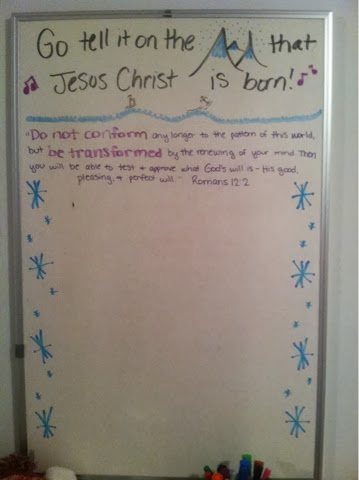 Go tell it on the that
Jesus Christ is born!
"Do not conform any longer to the pattern of this world,
but be transformed by the renewing of your mind. Then
you will be able to test & approve what God's will is - His good,
pleasing, & perfect will." Romans 12:2